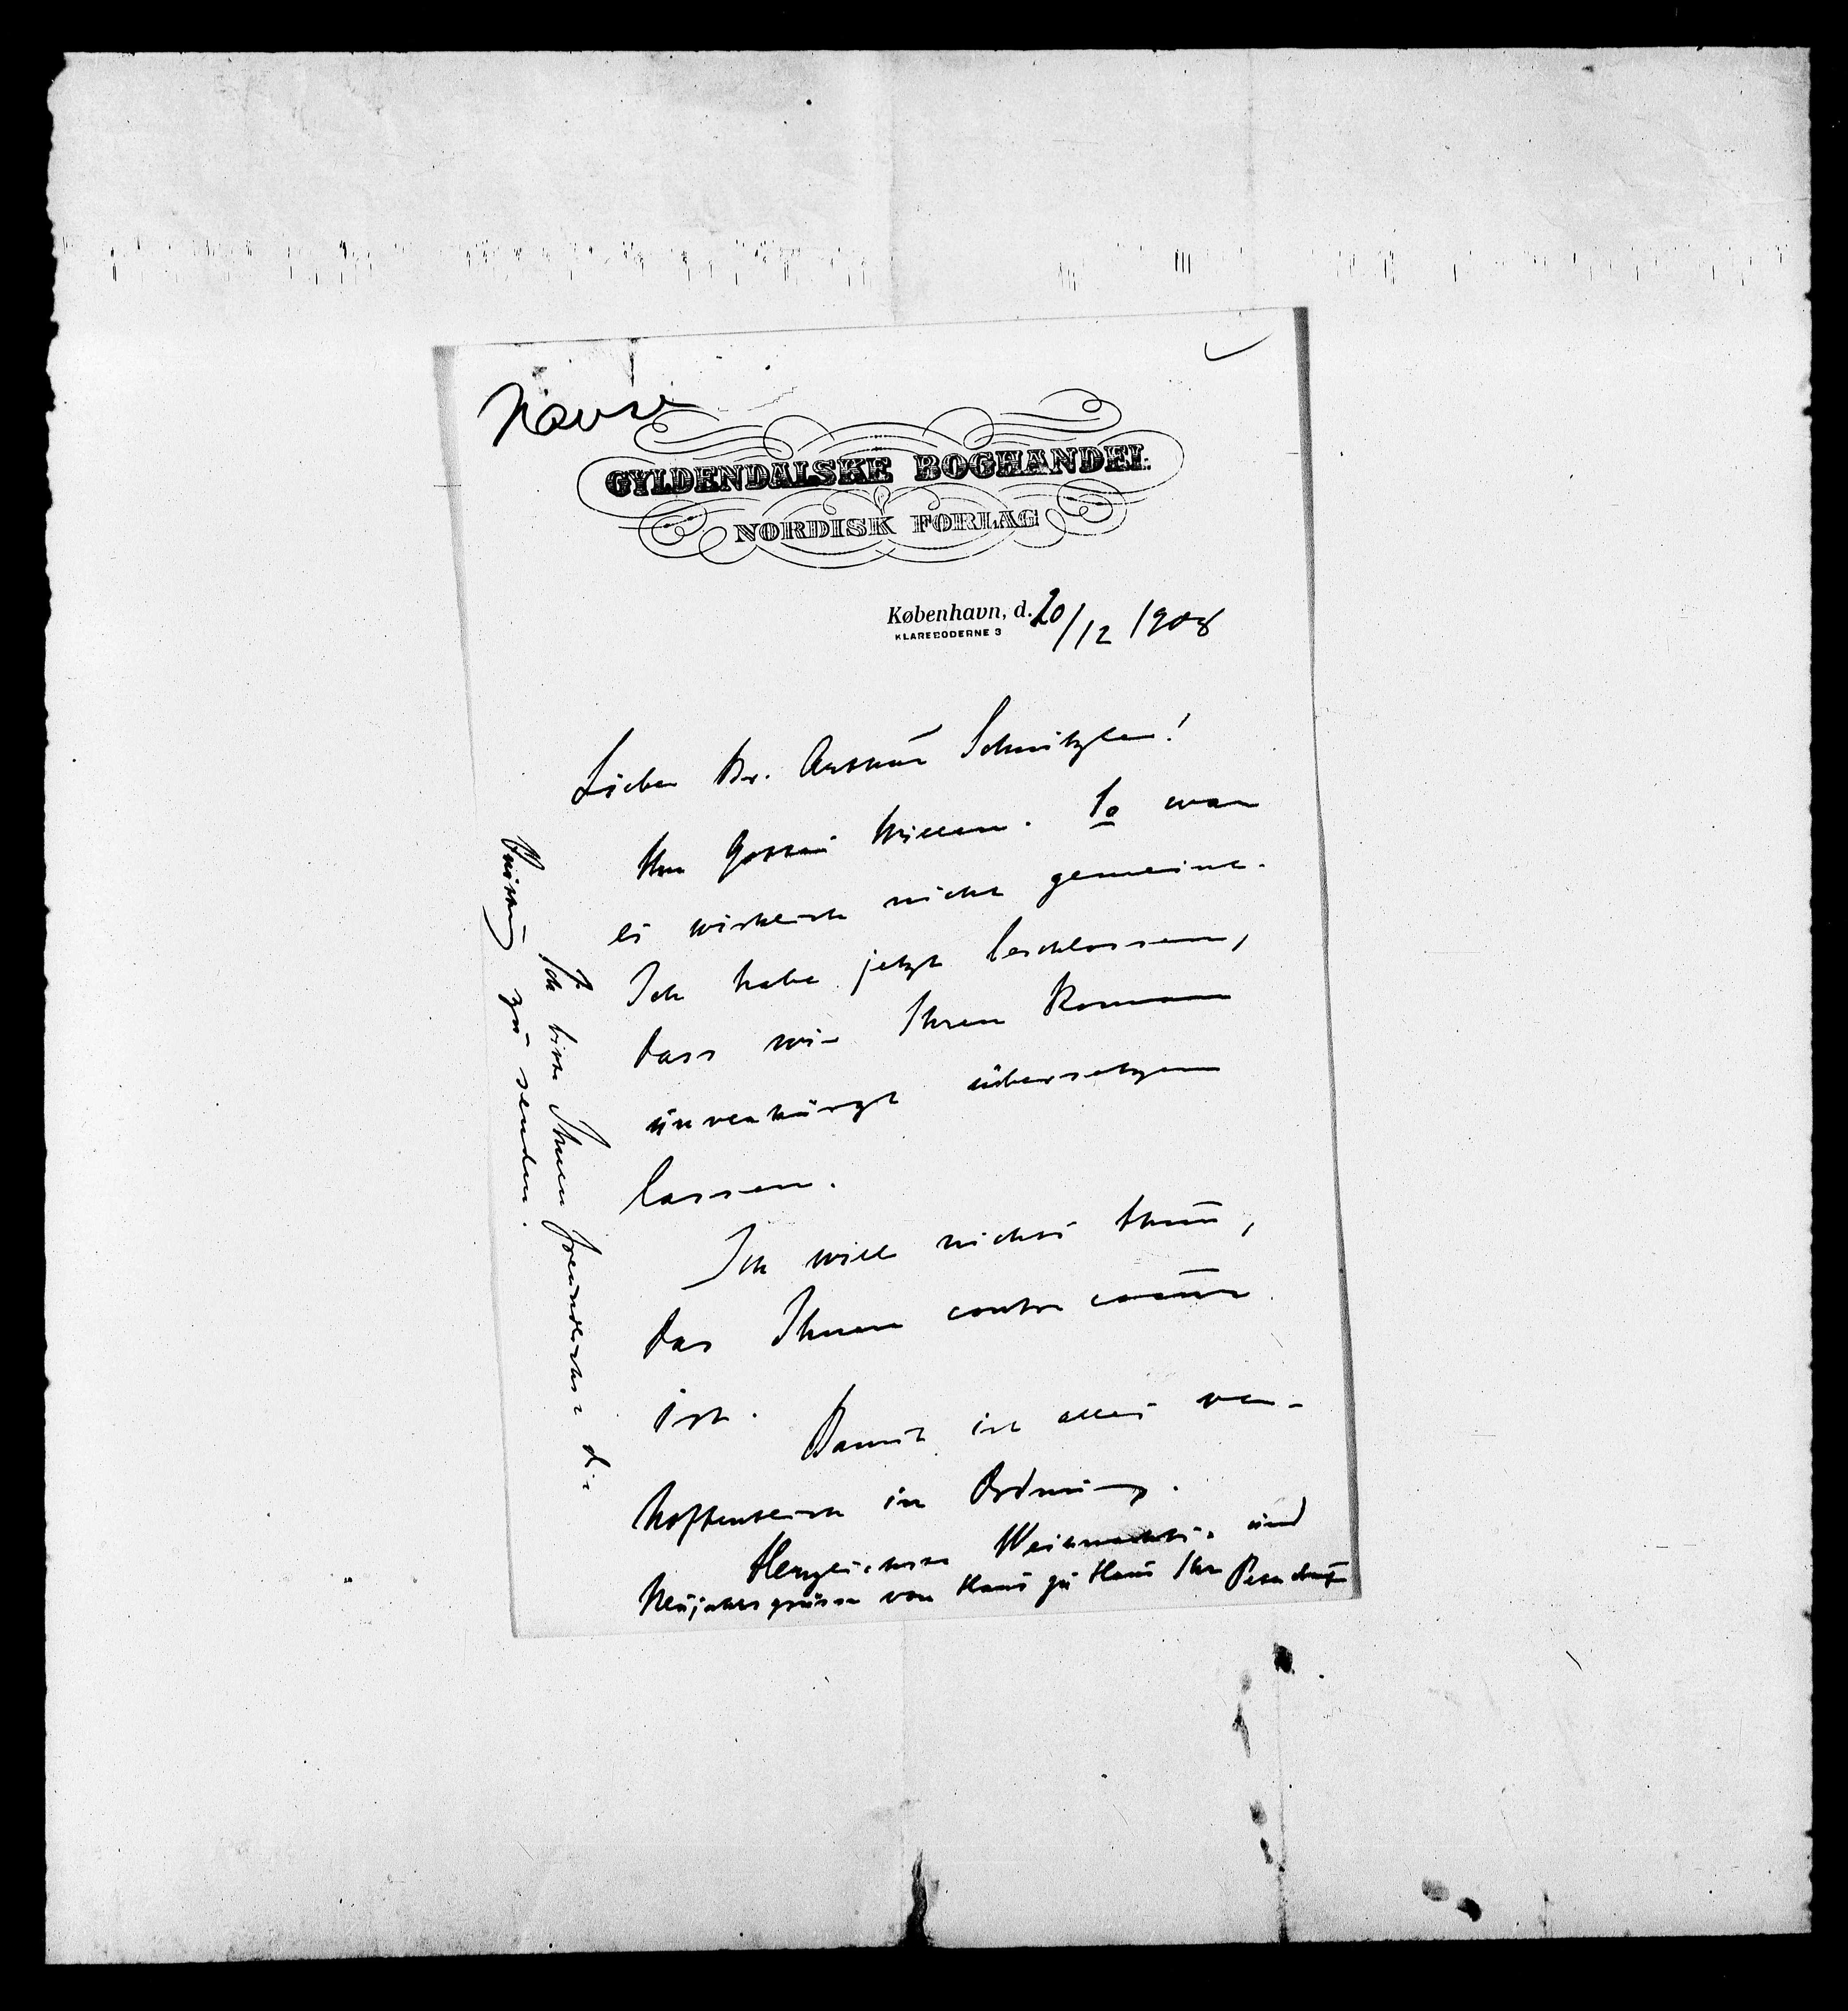 Nansen
GYLDENDALSKE BOGHANDEL
NORDISK FORLAG
København, d. 20/12 1908
KLAREBODERNE 3
Lieber Dr. Arthur Schnitzler!
Um Gottes Willen. So war
es wirklich nicht gemeint.
Ich habe jetzt beschlossen,
dass wir Ihren Roman
unverkürzt übersetzen
lassen.
Ich will nichts thun,
das Ihnen contre coeur
ist. Damit ist alles ver-
hoffentlich in Ordnung.
Herzlichste Weihnachts- und
Neujahrsgrüsse von Haus zu Haus Ihr Peter Nansen
Ich bitte Ihnen freundlichst die
Quittung zu senden.